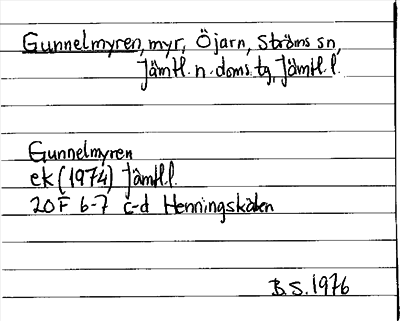 Gunnelmyren, myr, Öjarn, Ströms sn,
Jämtl. n. doms. tg, Jämtl. l.
Gunnelmyren
ek (1974) Jämtl.l.
20F 6-7 c-d Henningskälen
B.S. 1976